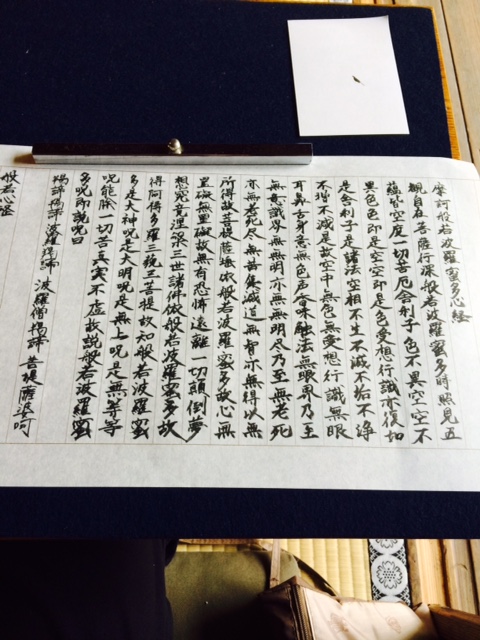 摩訶般若波羅蜜多心経
観自在菩薩行深般若波羅蜜多時照見五
蘊皆空度一切苦厄舎利子色不異空空不
異色色即是空空即是色受想行識亦復如
是舎利子是諸法空相不生不滅不垢不浄
不増不減是故空中無色無受想行識無眼
耳鼻舌身意無色声香味触法無眼界乃至
無意識界無無明亦無無明尽乃至無老死
亦無老死尽無苦集滅道無智亦無得以無
所得故菩提薩埵依般若波羅蜜多故心無
罣礙無罣礙故無有恐怖遠離一切顛倒夢
想究竟涅槃三世諸仏依般若波羅蜜多故
得阿耨多羅三藐三菩提故知般若波羅蜜
多是大神呪是大明呪是無上呪是無等等
呪能除一切苦真実不虚故説般若波羅蜜
多呪即説呪曰
羯諦羯諦 波羅羯諦 波羅僧羯諦 菩提薩婆呵
般若心経